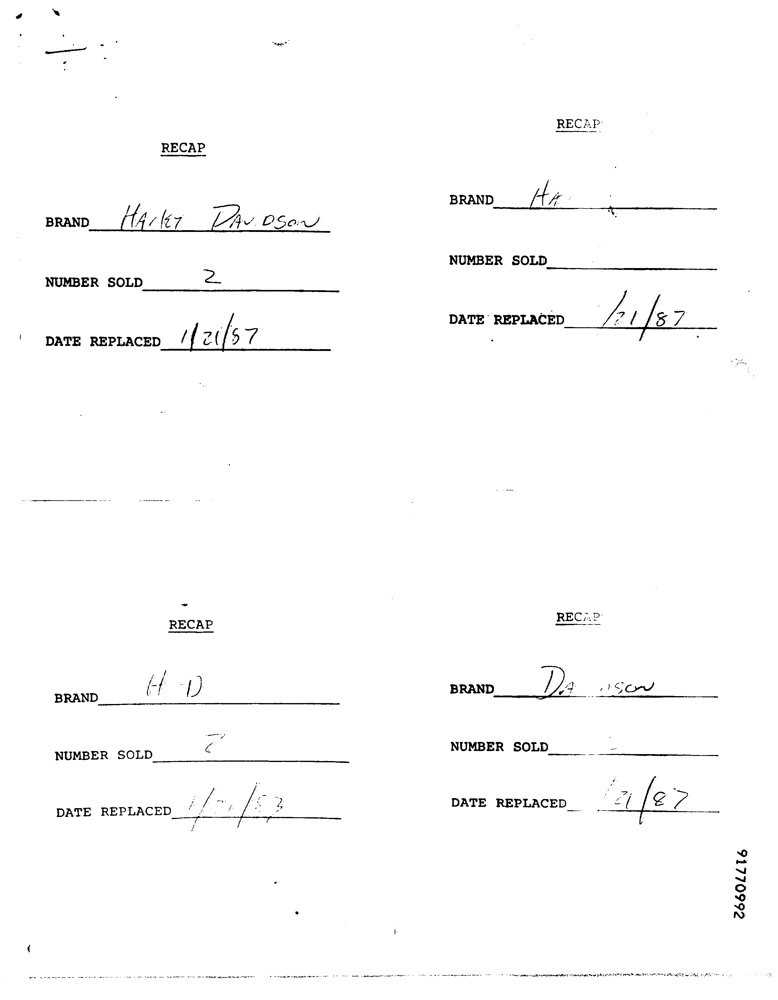 RECAP
BRAND Harley Davidson
NUMBER SOLD 2
DATE REPLACED 1/21/87
RECAP
BRAND HA
NUMBER SOLD
DATE REPLACED /21/87
RECAP
BRAND H D
NUMBER SOLD
DATE REPLACED
RECAP
BRAND DA SON
NUMBER SOLD
DATE REPLACED /21/87
91770992